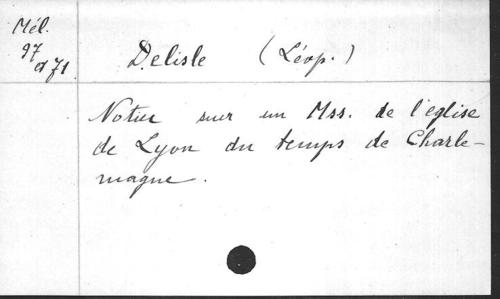 Mél.
97
d 71
Delisle (Léop.)
Notice sur un Mss. de l'église
de Lyon du temps de Charle-
magne.